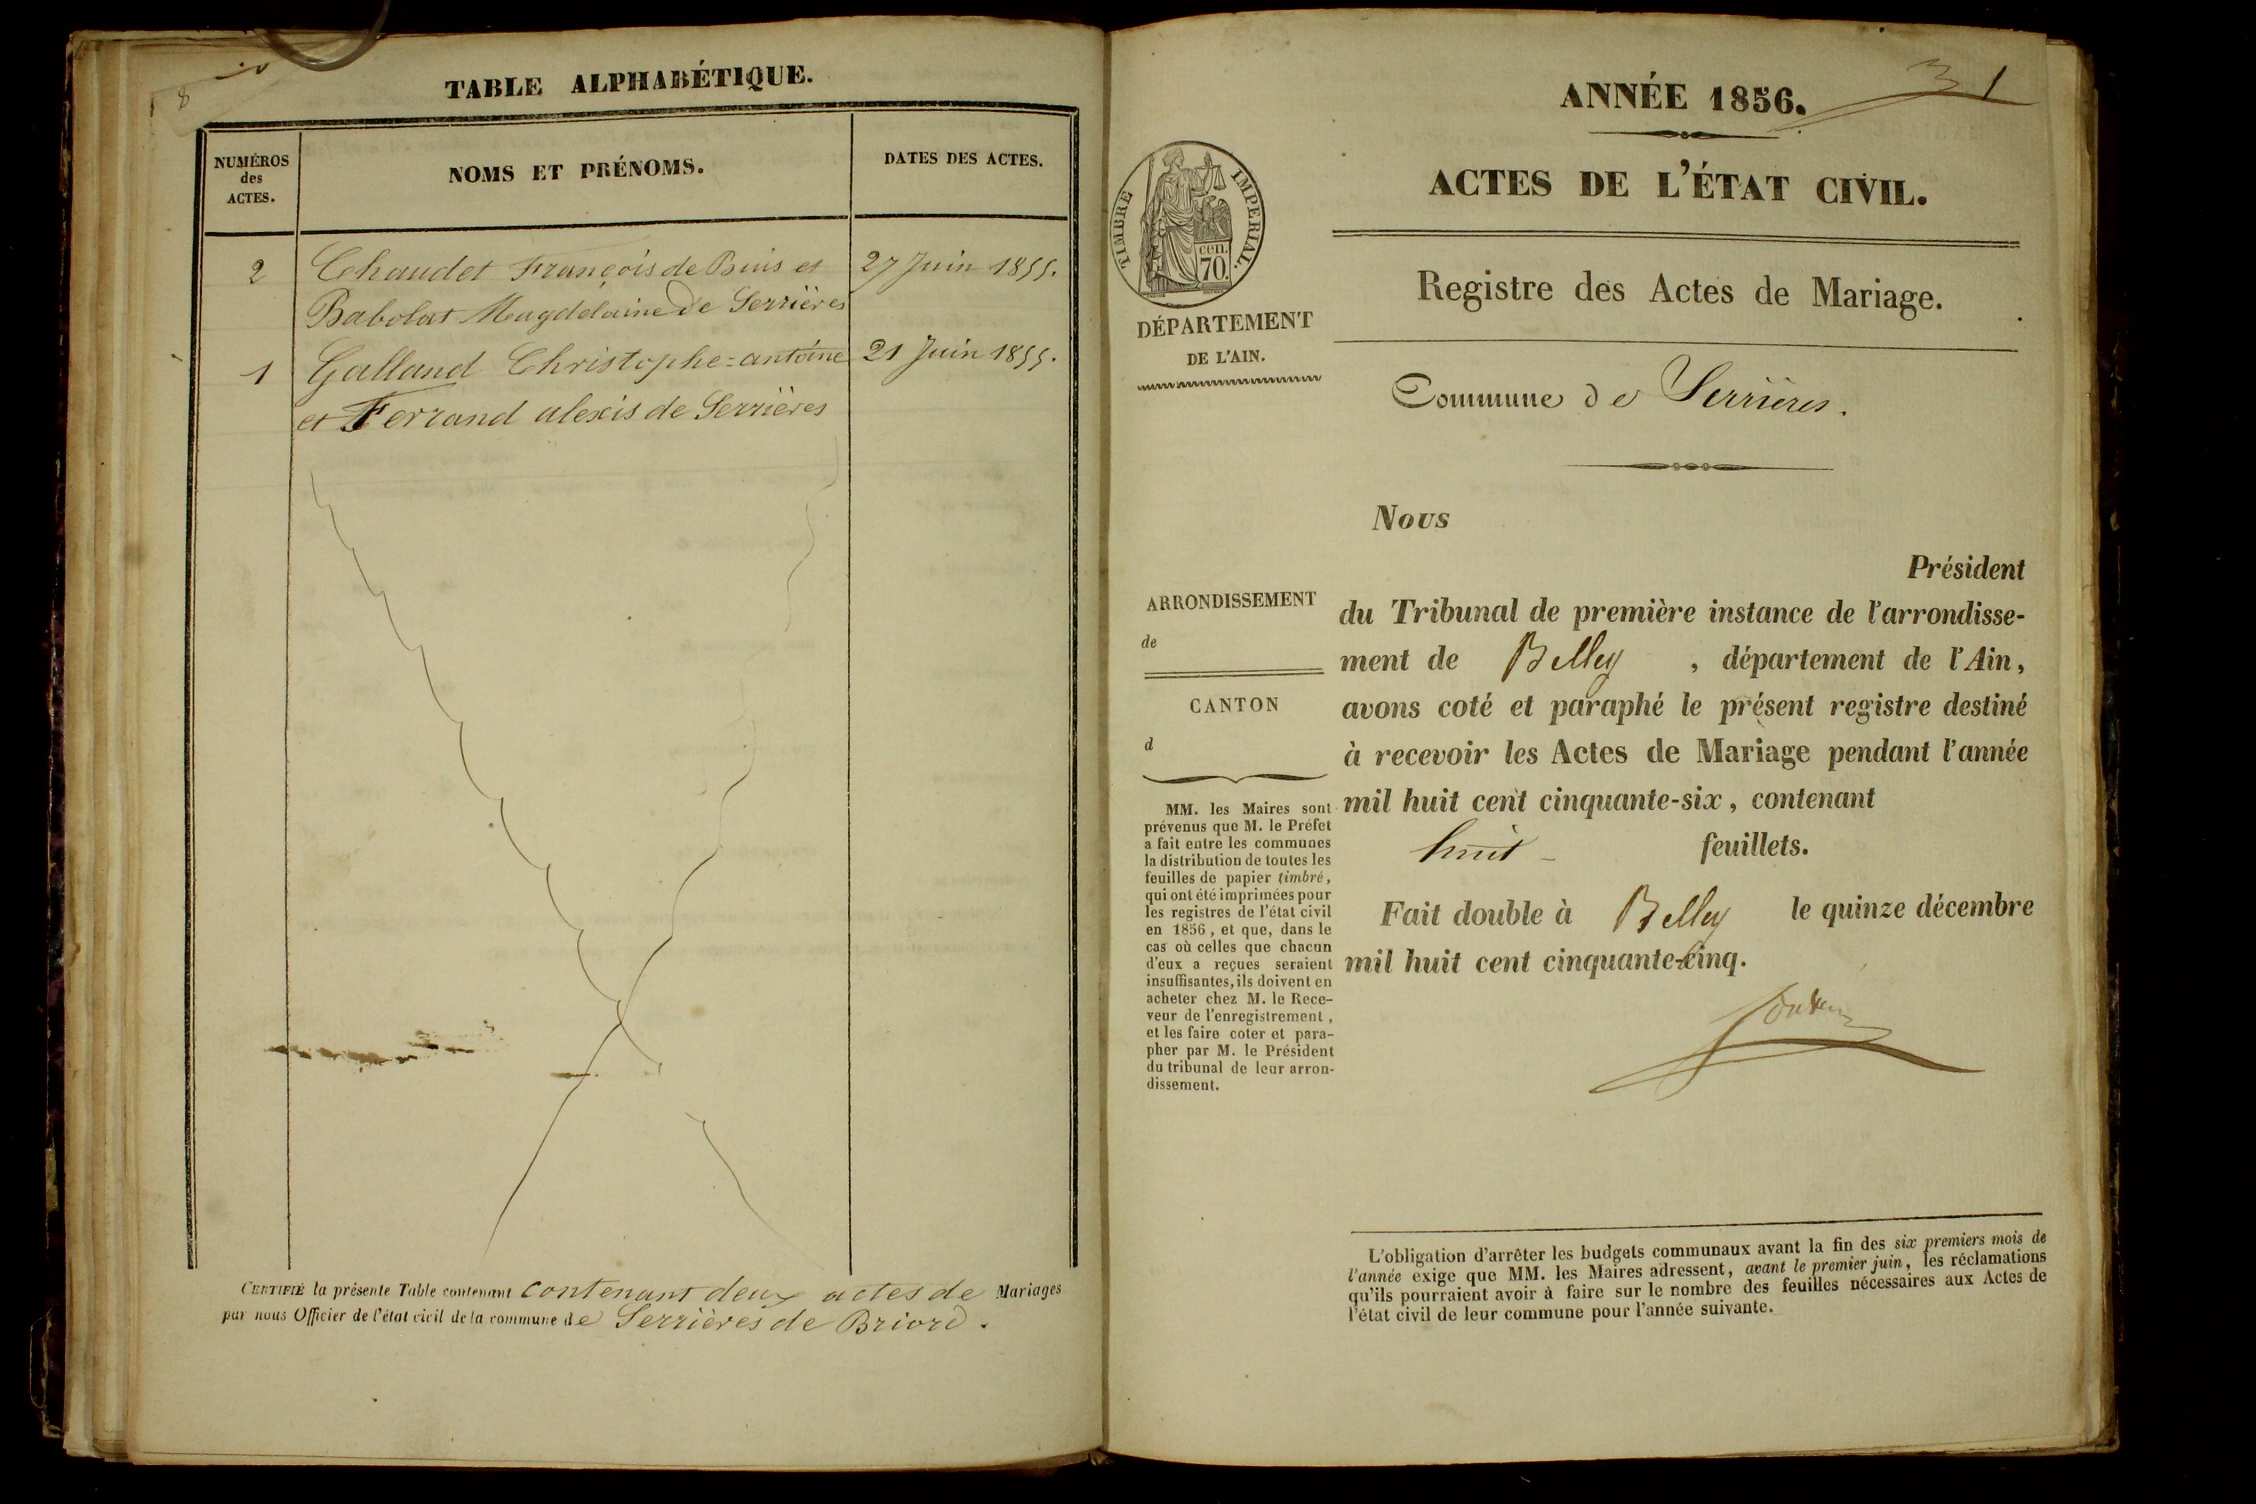 8
TABLE ALPHABÉTIQUE.
NUMÉROS
des
ACTES.
NOMS ET PRÉNOMS.
DATES DES ACTES.
2 Chaudet François de Buis et 27 Juin 1855.
Babolat Magdelaine de Serrières
1 Galland Christophe=antoine 21 Juin 1855.
et Ferrand alexis de Serrières
CERTIFIÉ la présente Table contenant contenant deux actes de Mariages
par nous Officier de l'état civil de la commune de Serrières de Briord.
1
ANNÉE 1856.
ACTES DE L'ÉTAT CIVIL.
TIMBRE IMPERIAL.
cen.
70.
DÉPARTEMENT
DE L'AIN.
Registre des Actes de Mariage.
Commune de Serrières.
Nous
Président
du Tribunal de première instance de l'arrondisse-
ment de Belley, département de l'Ain,
avons coté et paraphé le présent registre destiné
à recevoir les Actes de Mariage pendant l'année
mil huit cent cinquante-six, contenant
huit feuillets.
Fait double à Belley le quinze décembre
mil huit cent cinquante-cinq.
ARRONDISSEMENT
de
CANTON
d
MM. les Maires sont
prévenus que M. le Préfet
a fait entre les communes
la distribution de toutes les
feuilles de papier timbré,
qui ont été imprimées pour
les registres de l'état civil
en 1856, et que, dans le
cas où celles que chacun
d'eux a reçues seraient
insuffisantes, ils doivent en
acheter chez M. le Rece-
veur de l'enregistrement,
et les faire coter et para-
pher par M. le Président
du tribunal de leur arron-
dissement.
L'obligation d'arrêter les budgets communaux avant la fin des six premiers mois de
l'année exige que MM. les Maires adressent, avant le premier juin, les réclamations
qu'ils pourraient avoir à faire sur le nombre des feuilles nécessaires aux Actes de
l'état civil de leur commune pour l'année suivante.